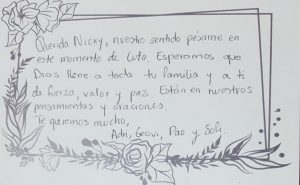 Querida Nicky, nuestro sentido pésame en
este momento de luto. Esperamos que
Dios llene a toda tu familia y a ti
de fuerza, valor y paz. Están en nuestros
pensamientos y oraciones.
Te queremos mucho,
Adri, Geovi, Pao y Sofi.